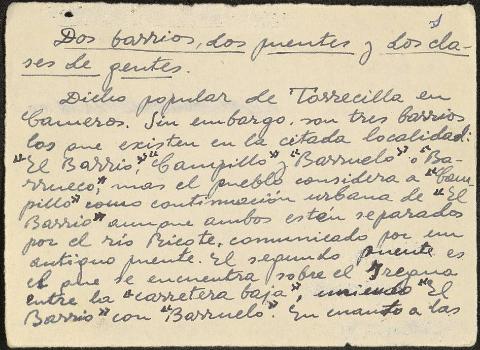 Dos barrios, dos puentes y dos cla-
ses de gentes.
Dicho popular de Torrecilla en
Cameros. Sin embargo, son tres barrios
los que existen en la citada localidad:
"El Barrio", "Campillo" y "Barruelo" o "Ba-
rrueco", mas el pueblo considera a "Cam-
pillo" como continuación urbana de "El
Barrio" aunque ambos estén separados
por el río Ricote, comunicado por un
antiguo puente. El segundo puente es
el que se encuentra sobre el Iregua
entre la "carretera baja", uniendo "El
Barrio" con "Barruelo". En cuanto a las